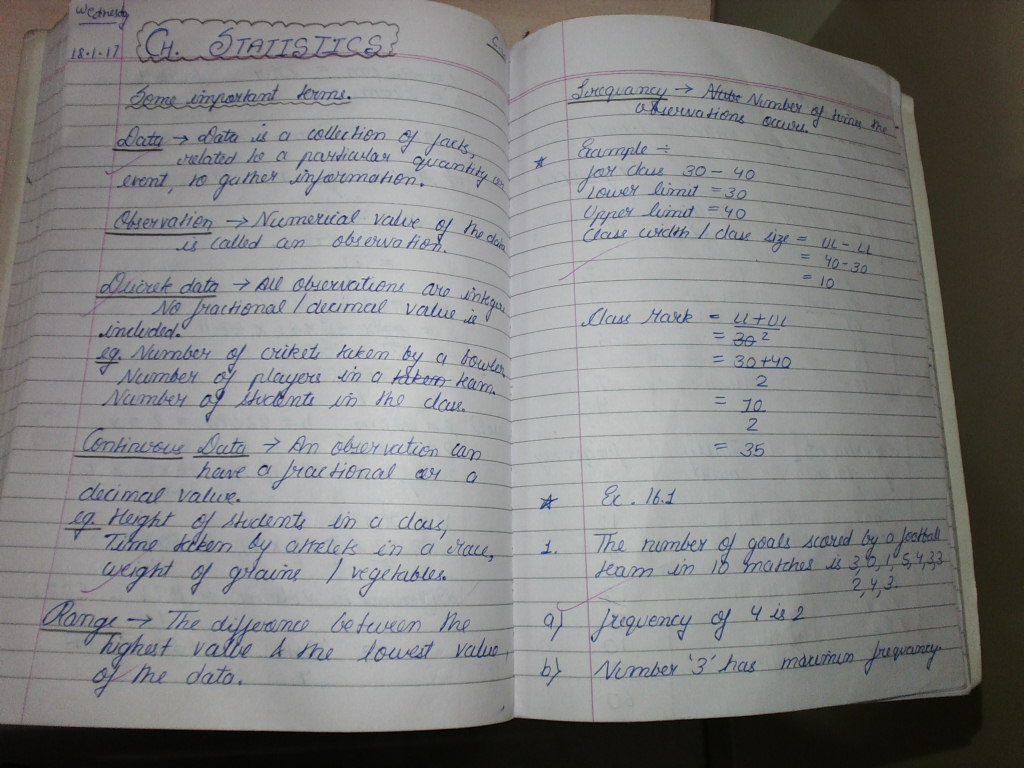 Wednesday
18.1.17
CH. STATISTICS
Some important terms.
Data → Data is a collection of facts,
related to a particular quantity or
event, to gather information.
Observation → Numerical value of the data
is called an observation.
Discrete data → All observations are
No fractional / decimal value is
included.
eg. Number of crikets taken by a bowler.
Number of players in a taken team.
Number of students in the class.
Continuous Data → An observation can
have a fractional or a
decimal value.
eg. Height of students in a class,
Time taken by athelets in a race,
weight of grains / vegetables.
Range → The difference between the
highest value & the lowest value
of the data.
Frequancy → Number of times the
observations occurs.
Example ÷
for class 30 - 40
Lower limit = 30
Upper limit = 40
Class width / class size = UL - LL
= 40-30
= 10
Class Mark = LL + UL
= 30 2
= 30+40
2
= 70
2
= 35
Ex. 16.1
1. The number of goals scored by a football
team in 10 matches is 3,0,1,5,4,3,3
2,4,3.
a) frequency of 4 is 2
b) Number '3' has maximun frequancy.